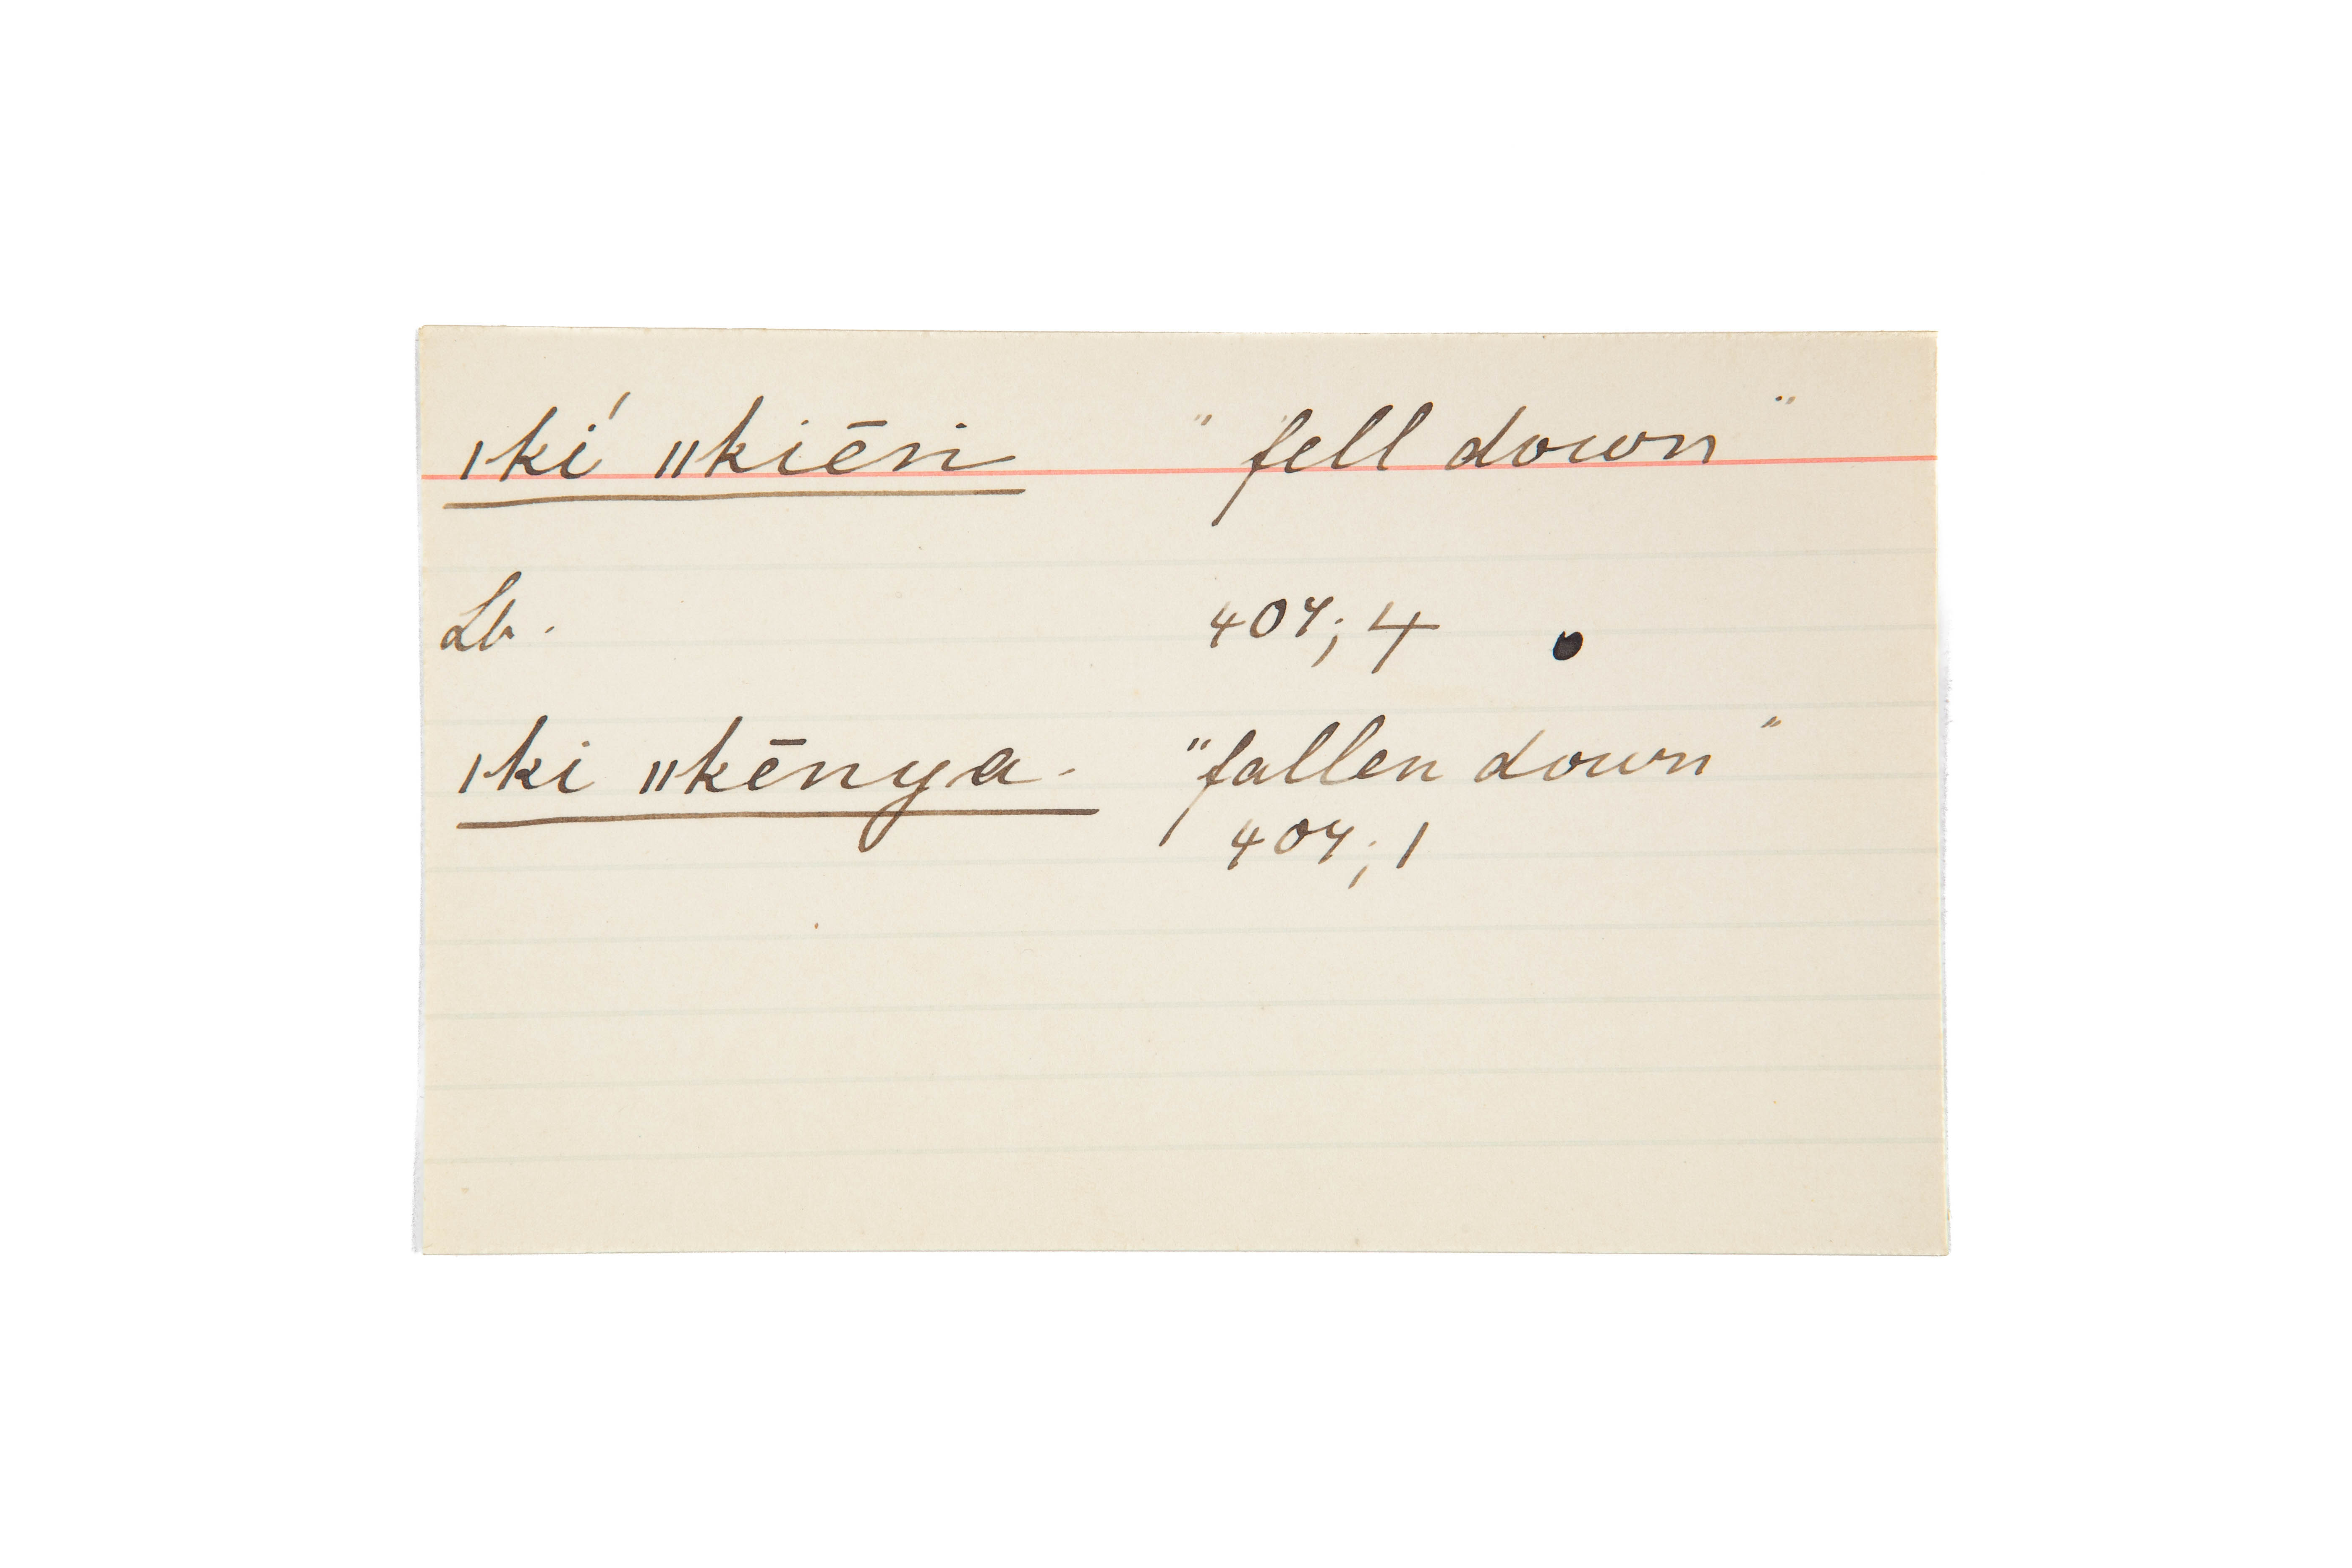 ǀkí ǁkiēn "fell down"
Lb. 407; 4
ǀki ǁkēnya. "fallen down"
407; 1